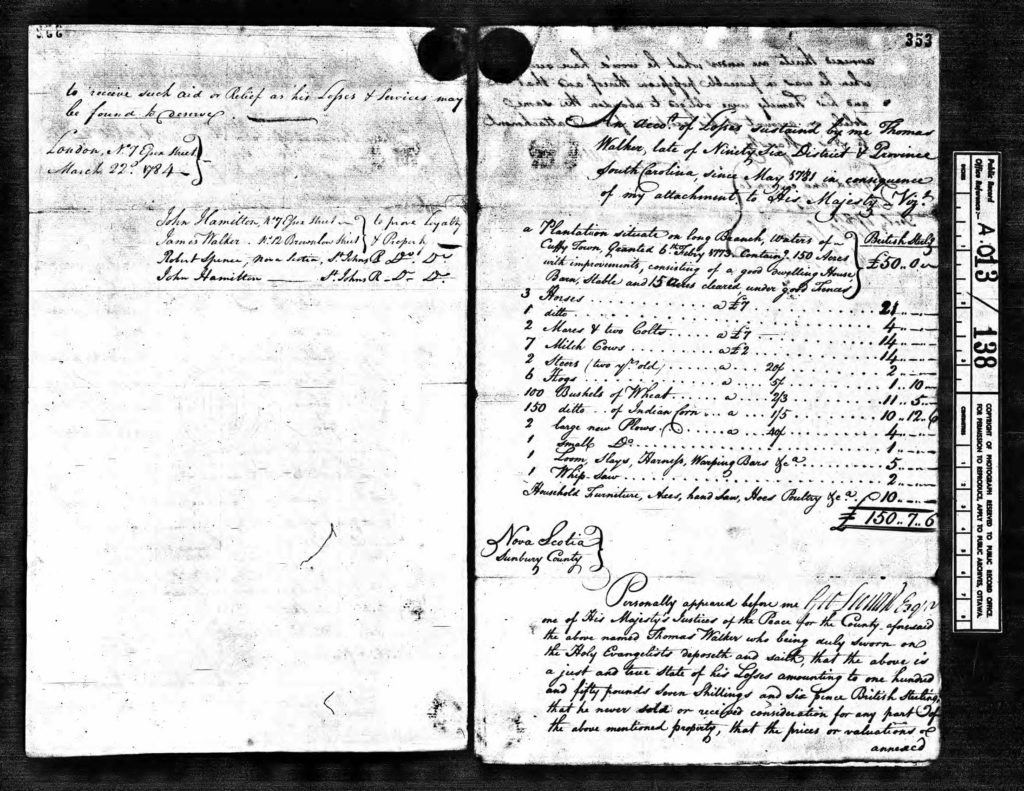 to receive such aid or Relief as his Losses & Services may
be found to deserve.
London, No. 7 Essex Street
March 22d. 1784
John Hamilton, No. 7 Essex Street to prove loyalty
James Walker. No. 12 Brownlow Street & Property
Robert Spence, Nova Scotia, St. Johns R Do. Do.
John Hamilton St. Johns R Do. Do.
353
An Acct. of Losses sustaind by me Thomas
Walker, late of Ninety Six District & Province
South Carolina, since May 1781 in consequence
of my attachment to His Majesty Vizt.
British Sterlg
a Plantation situate on long Branch, Waters of
Cuffy Town, Granted 6th Febry 1773. Containg. 150 Acres
with improvements, consisting of a good Dwelling House
Barn, Stable and 15 Acres cleared under good Fences £50..0
3 Horses a £7 21
1 ditto 4
2 Mares & two Colts a £7 14
7 Milch Cows a £2 14
2 Steers (two yrs. old) a 20/ 2
6 Hogs a 5/ 1..10
100 Bushels of Wheat a 2/3 11..5
150 ditto of Indian Corn a 1/5 10..12..6
2 large new Plows a 40/ 4
1 small Do. 1
1 Loom, Slays, Harness, Warping Bars &ca. 5
1 Whip Saw 2
Household Furniture, Axes, hand saw, Hoes Poultry &ca. 10
£150..7..6
Nova Scotia
Sunbury County
Personally appeared before me Esqr.
one of His Majesty's Justices of the Peace for the County aforesaid
the above named Thomas Walker who being duly sworn on
the Holy Evangelists deposeth and saith, that the above is
a just and true State of his Losses amounting to one hundred
and fifty pounds Seven Shillings and Six pence British Sterling,
that he never sold or received consideration for any part of
the above mentioned property, that the prices or valuations
annexed
Public Record
Office Reference:-
A.O. 13 / 138
COPYRIGHT OF PHOTOGRAPH RESERVED TO PUBLIC RECORD OFFICE.
FOR PERMISSION TO REPRODUCE APPLY TO PUBLIC ARCHIVES, OTTAWA.